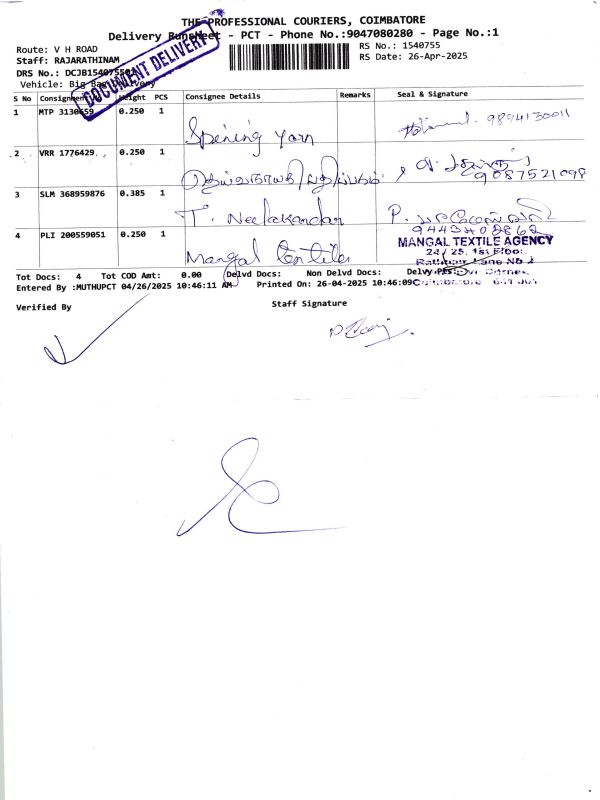 THE PROFESSIONAL COURIERS, COIMBATORE
Delivery Runsheet - PCT - Phone No.:9047080280 - Page No.:1
Route: V H ROAD
RS No.: 1540755
Staff: RAJARATHINAM
RS Date: 26-Apr-2025
DRS No.: DCJB1540755
DOCUMENT DELIVERY
Vehicle: Big Bag Delivery
S No Consignment Weight PCS Consignee Details Remarks Seal & Signature
1 MTP 3130659 0.250 1 Spining yarn 9894130011
2 VRR 1776429 0.250 1 9087521098
3 SLM 368959876 0.385 1 T. Neelakandan P.
9443408862
4 PLI 200559051 0.250 1 Mangal textiles
MANGAL TEXTILE AGENCY
24/25, 1st Floor
Lane No
Tot Docs: 4 Tot COD Amt: 0.00 Delvd Docs: Non Delvd Docs:
Entered By :MUTHUPCT 04/26/2025 10:46:11 AM Printed On: 26-04-2025 10:46:09
Verified By
Staff Signature